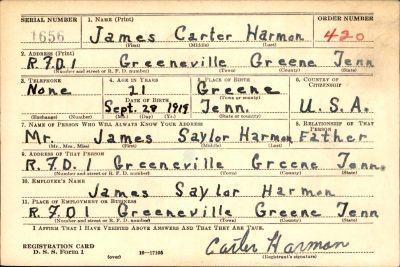 SERIAL NUMBER 1. NAME (Print) ORDER NUMBER
1656 James Carter Harmon 420
(First) (Middle) (Last)
2. ADDRESS (Print)
R.F.D.1 Greeneville Greene Tenn
(Number and street or R. F. D. number) (Town) (County) (State)
3. TELEPHONE 4. AGE IN YEARS 5. PLACE OF BIRTH 6. COUNTRY OF CITIZENSHIP
None 21 Greene
DATE OF BIRTH (Town or county)
Sept. 28 1919 Tenn. U.S.A.
(Exchange) (Number) (Mo.) (Day) (Yr.) (State or country)
7. NAME OF PERSON WHO WILL ALWAYS KNOW YOUR ADDRESS 8. RELATIONSHIP OF THAT PERSON
Mr. James Saylor Harmon Father
(Mr., Mrs., Miss) (First) (Middle) (Last)
9. ADDRESS OF THAT PERSON
R.F.D. 1 Greeneville Greene Tenn.
(Number and street or R. F. D. number) (Town) (County) (State)
10. EMPLOYER'S NAME
James Saylor Harmon
11. PLACE OF EMPLOYMENT OR BUSINESS
R.F.D1 Greeneville Greene Tenn
(Number and street or R. F. D. number) (Town) (County) (State)
I AFFIRM THAT I HAVE VERIFIED ABOVE ANSWERS AND THAT THEY ARE TRUE.
REGISTRATION CARD
D. S. S. Form 1 (over) 16—17105 Carter Harmon
(Registrant's signature)